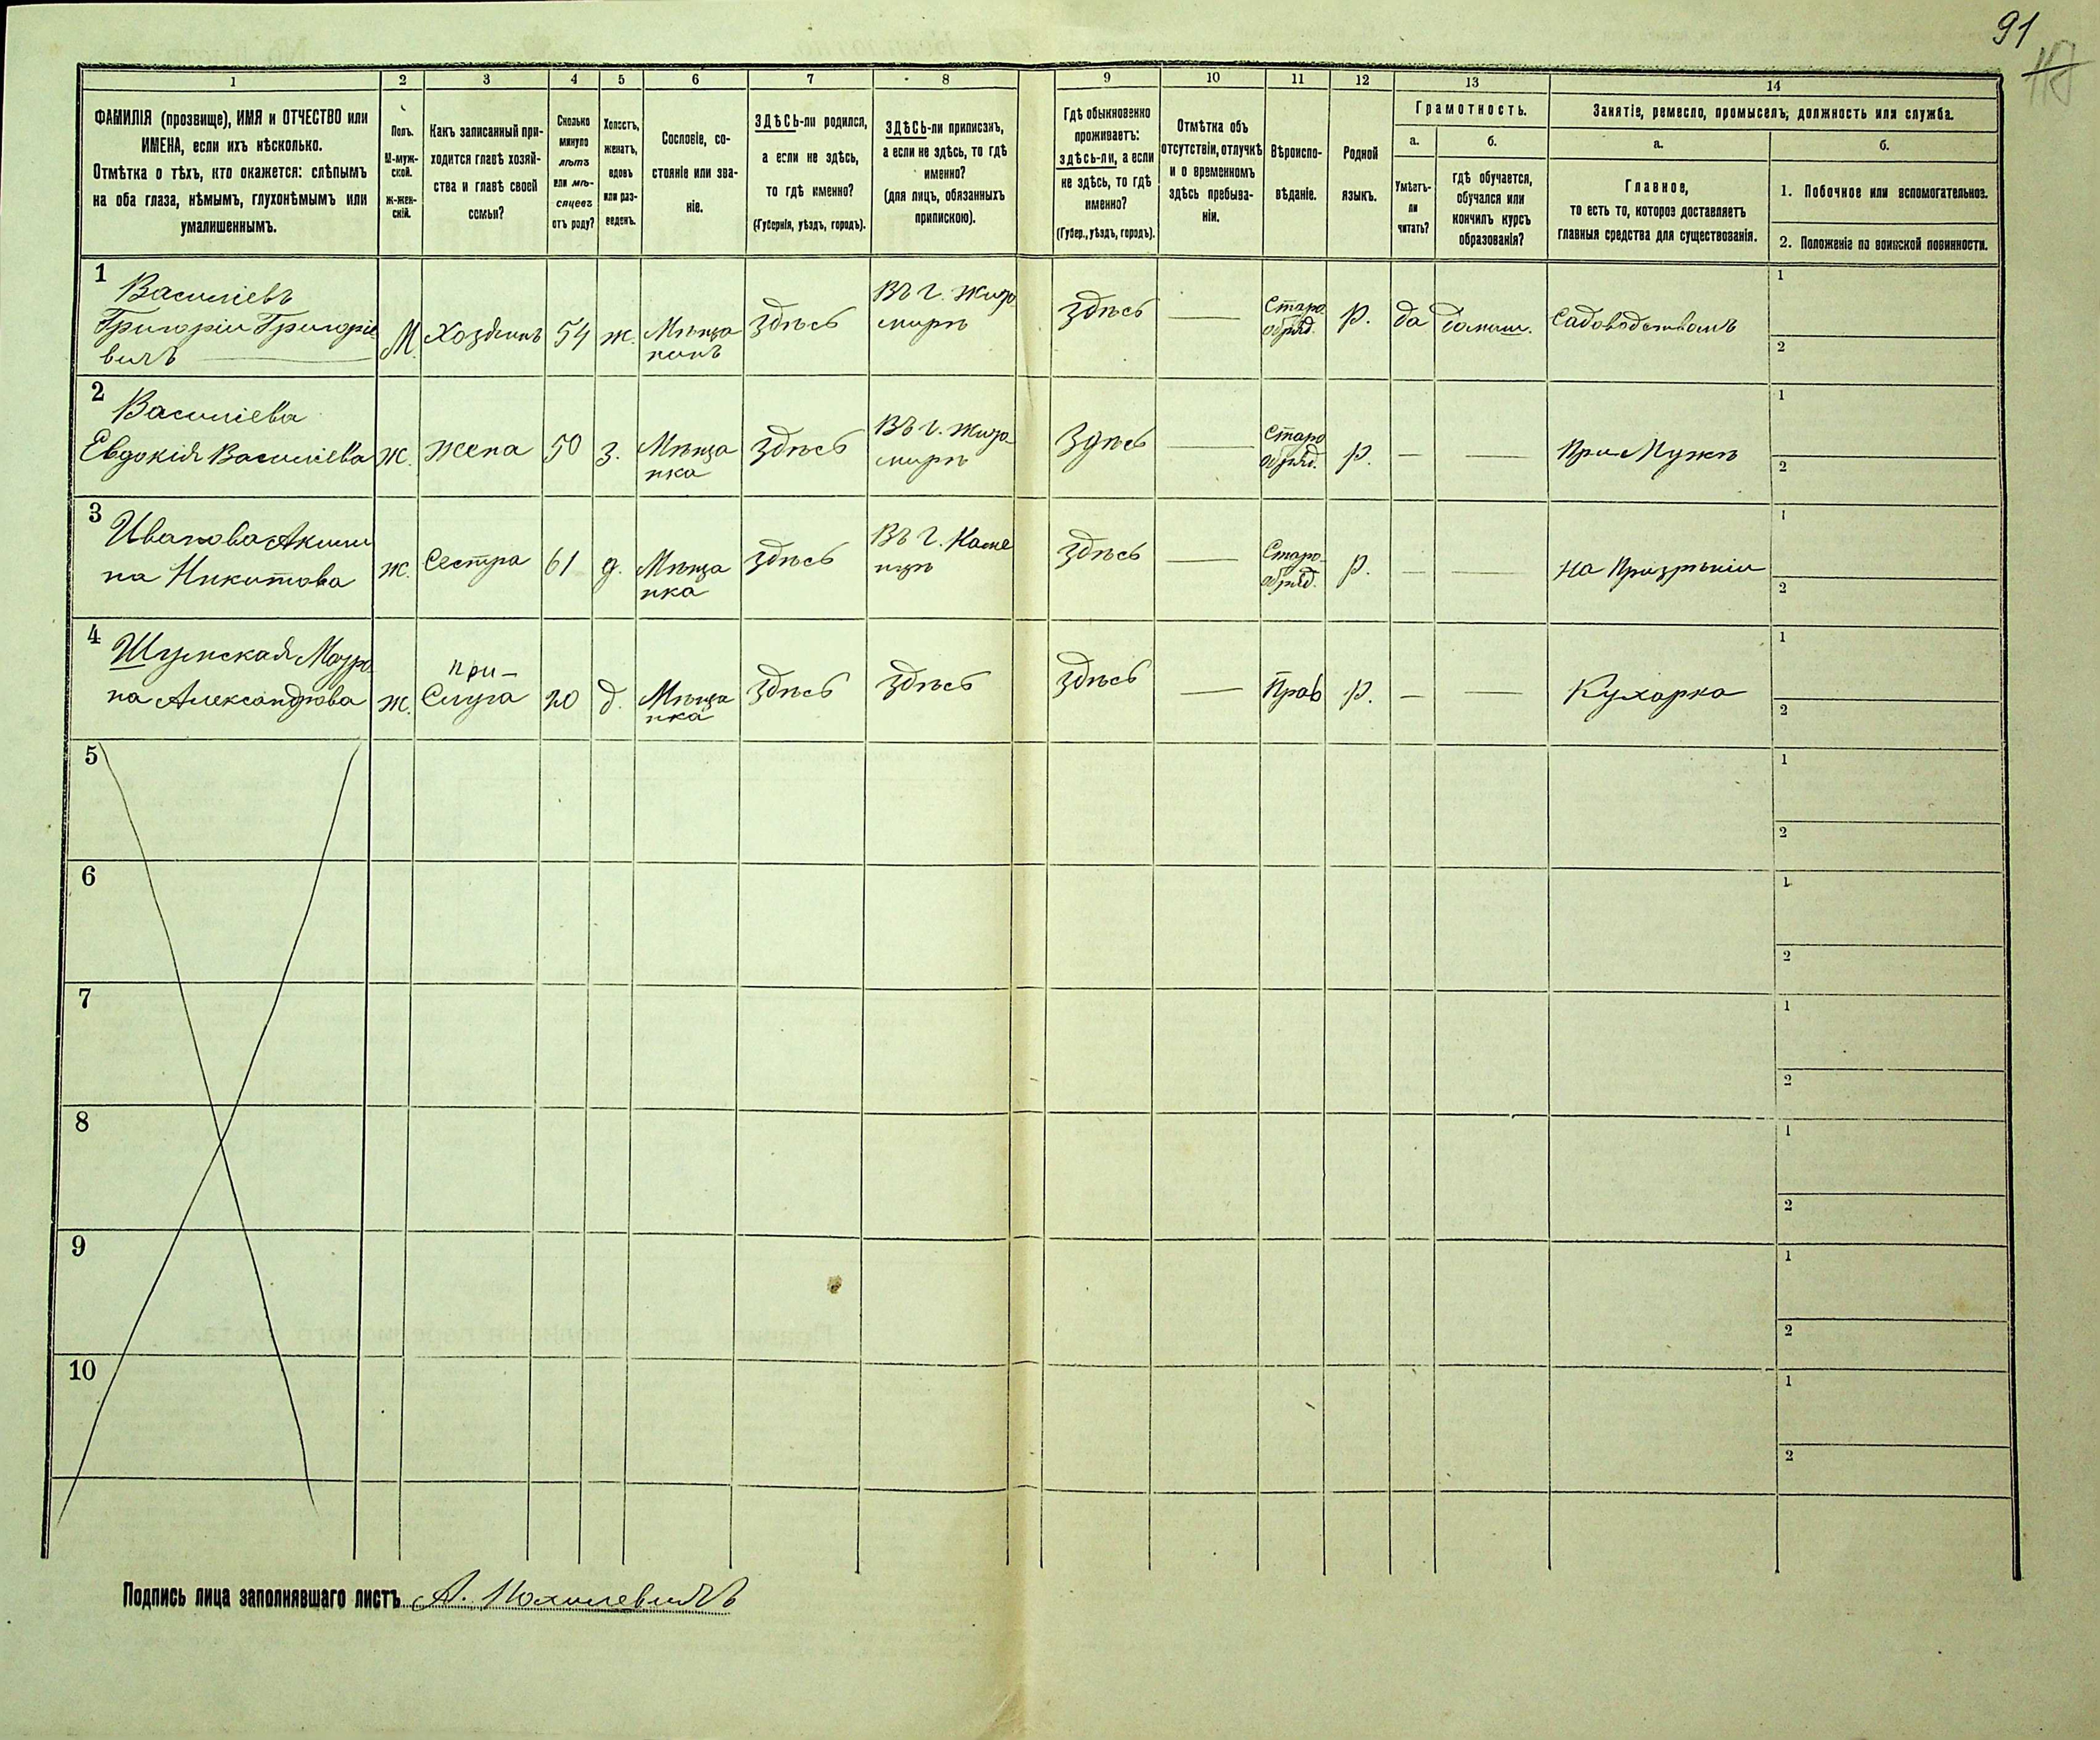 91
1
2
3
4
5
6
7
8
9
10
11
12
13
14
ФАМИЛІЯ (прозвище), ИМЯ и ОТЧЕСТВО или
ИМЕНА, если ихъ нѣсколько.
Отмѣтка о тѣхъ, кто окажется: слѣпымъ
на оба глаза, нѣмымъ, глухонѣмымъ или
умалишеннымъ.
Полъ.
М-муж-
ской.
Ж-жен-
скій.
Какъ записанный при-
ходится главѣ хозяй-
ства и главѣ своей
семьи?
Сколько
минуло
лѣтъ
или мѣ-
сяцевъ
отъ роду?
Холостъ,
женатъ,
вдовъ
или раз-
веденъ.
Сословіе, со-
стояніе или зва-
ніе.
ЗДѢСЬ-ли родился,
а если не здѣсь,
то гдѣ именно?
(Губернія, уѣздъ, городъ).
ЗДѢСЬ-ли приписанъ,
а если не здѣсь, то гдѣ
именно?
(для лицъ, обязанныхъ
припискою).
Гдѣ обыкновенно
проживаетъ:
здѣсь-ли, а если
не здѣсь, то гдѣ
именно?
(Губер., уѣздъ, городъ).
Отмѣтка объ
отсутствіи, отлучкѣ
и о временномъ
здѣсь пребыва-
ніи.
Вѣроиспо-
вѣданіе.
Родной
языкъ.
Грамотность.
а.
Умѣетъ-
ли
читать?
б.
гдѣ обучается,
обучался или
кончилъ курсъ
образованія?
Занятіе, ремесло, промыселъ, должность или служба.
а.
Главное,
то есть то, которое доставляетъ
главныя средства для существованія.
б.
1. Побочное или вспомогательное.
2. Положеніе по воинской повинности.
1
Василіевъ
Григоріи Григоріе
вичъ
М.
Хозяинъ
54
ж.
Мѣща
нинъ
Здѣсь
Въ г. Жито
мирѣ
Здѣсь
—
Старо
обряд.
р.
да
домаш.
Садоводствомъ
1
2
2
Василіева
Евдокія Василіева
ж.
Жена
50
з.
Мѣща
нка
Здѣсь
Въ г. Жито
мирѣ
Здѣсь
—
Старо
обряд.
р.
—
—
При Мужѣ
1
2
3
Иванова Акили
на Никитова
ж.
Сестра
61
д.
Мѣща
нка
Здѣсь
Въ г. Каме
нцѣ
Здѣсь
—
Старо-
обряд.
р.
—
—
на Призрѣніи
1
2
4
Шумская Матро
на Александрова
ж.
при-
Слуга
20
д.
Мѣща
нка
Здѣсь
Здѣсь
Здѣсь
—
Прав
р.
—
—
Кухарка
1
2
5
1
2
6
1
2
7
1
2
8
1
2
9
1
2
10
1
2
Подпись лица заполнявшаго листъ А. Похилевичъ